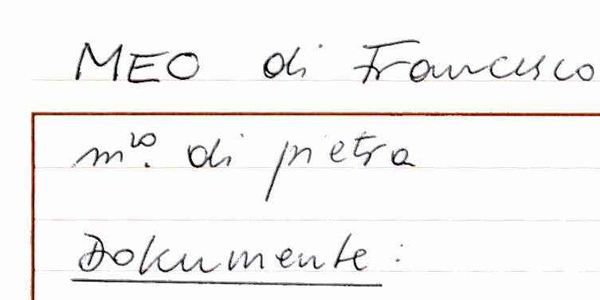 MEO di Francesco
m.ro di pietra
Dokumente: